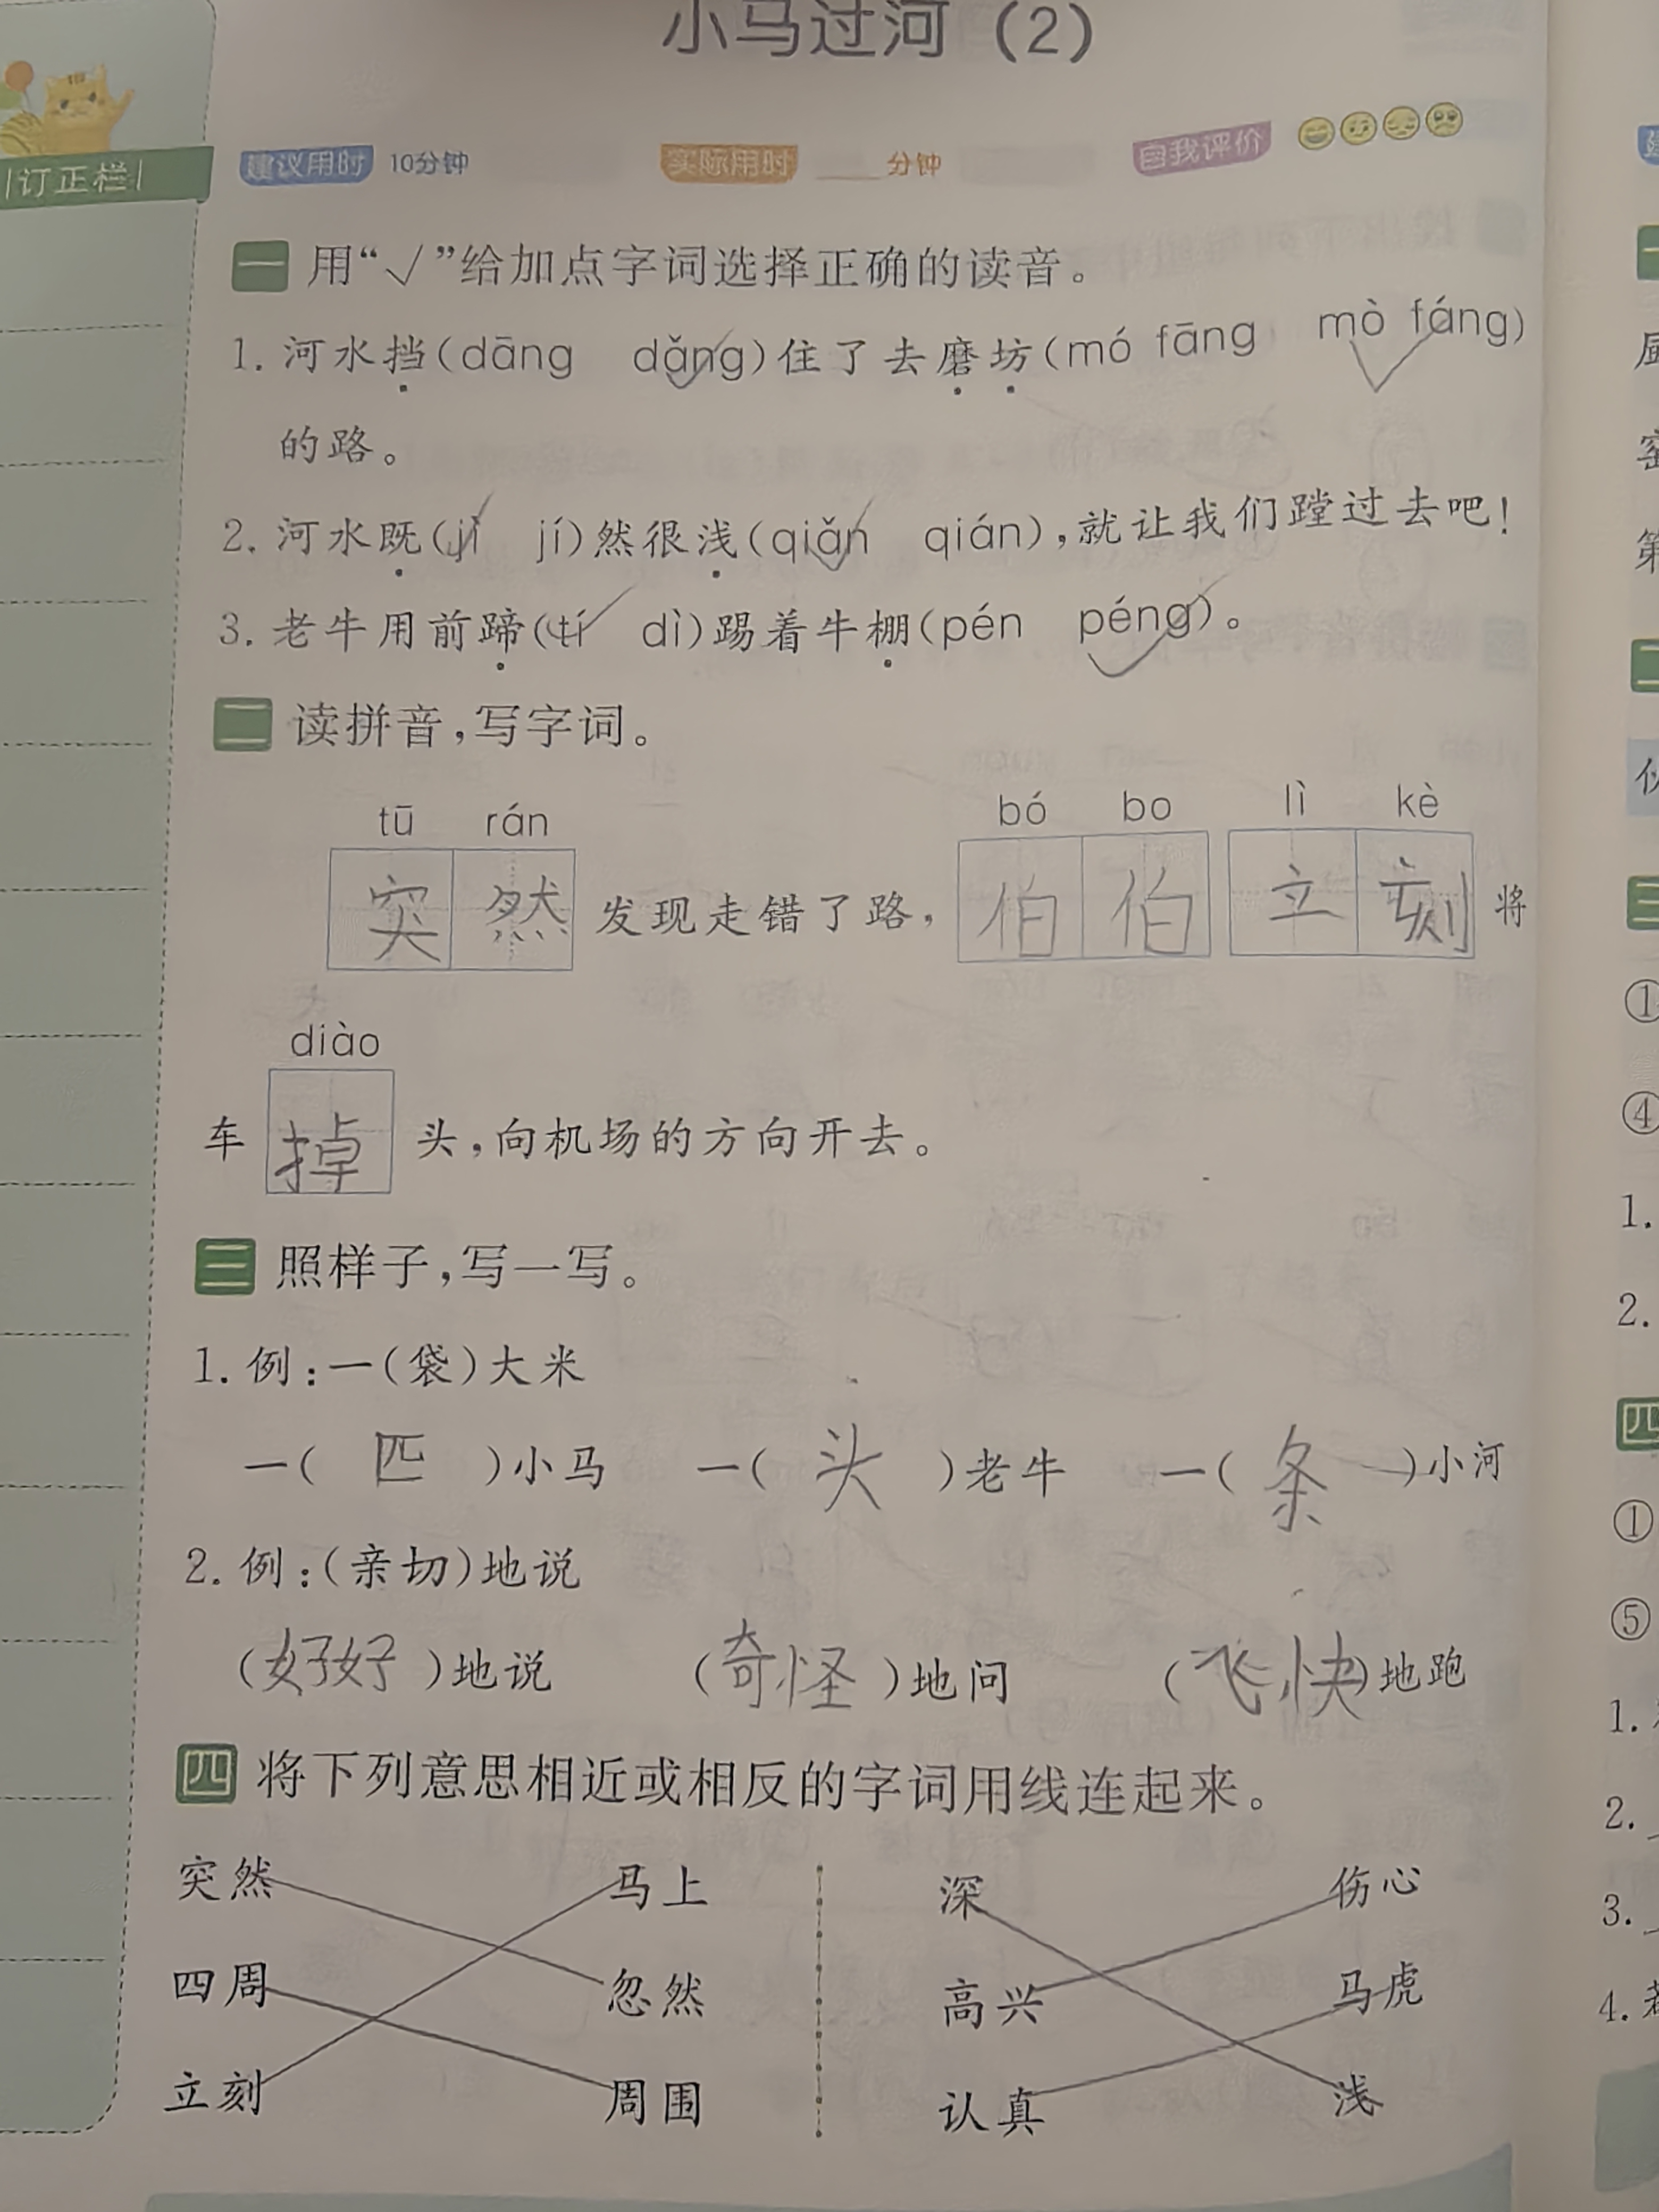 小马过河（2）
订正栏
建议用时 10分钟 实际用时 ____分钟 自我评价
一 用“√”给加点字词选择正确的读音。
1. 河水挡(dāng dǎng)住了去磨坊(mó fāng mò fáng)
的路。
2. 河水既(jì jí)然很浅(qiǎn qián)，就让我们蹚过去吧！
3. 老牛用前蹄(tí dì)踢着牛棚(pén péng)。
二 读拼音，写字词。
tū rán bó bo lì kè
突然发现走错了路，伯伯立刻将
diào
车掉头，向机场的方向开去。
三 照样子，写一写。
1. 例：一(袋)大米
一( 匹 )小马 一( 头 )老牛 一( 条 )小河
2. 例：(亲切)地说
(好好)地说 (奇怪)地问 (飞快)地跑
四 将下列意思相近或相反的字词用线连起来。
突然 马上 深 伤心
四周 忽然 高兴 马虎
立刻 周围 认真 浅
一
二
三
①
④
1.
2.
四
①
⑤
1.
2.
3.
4.